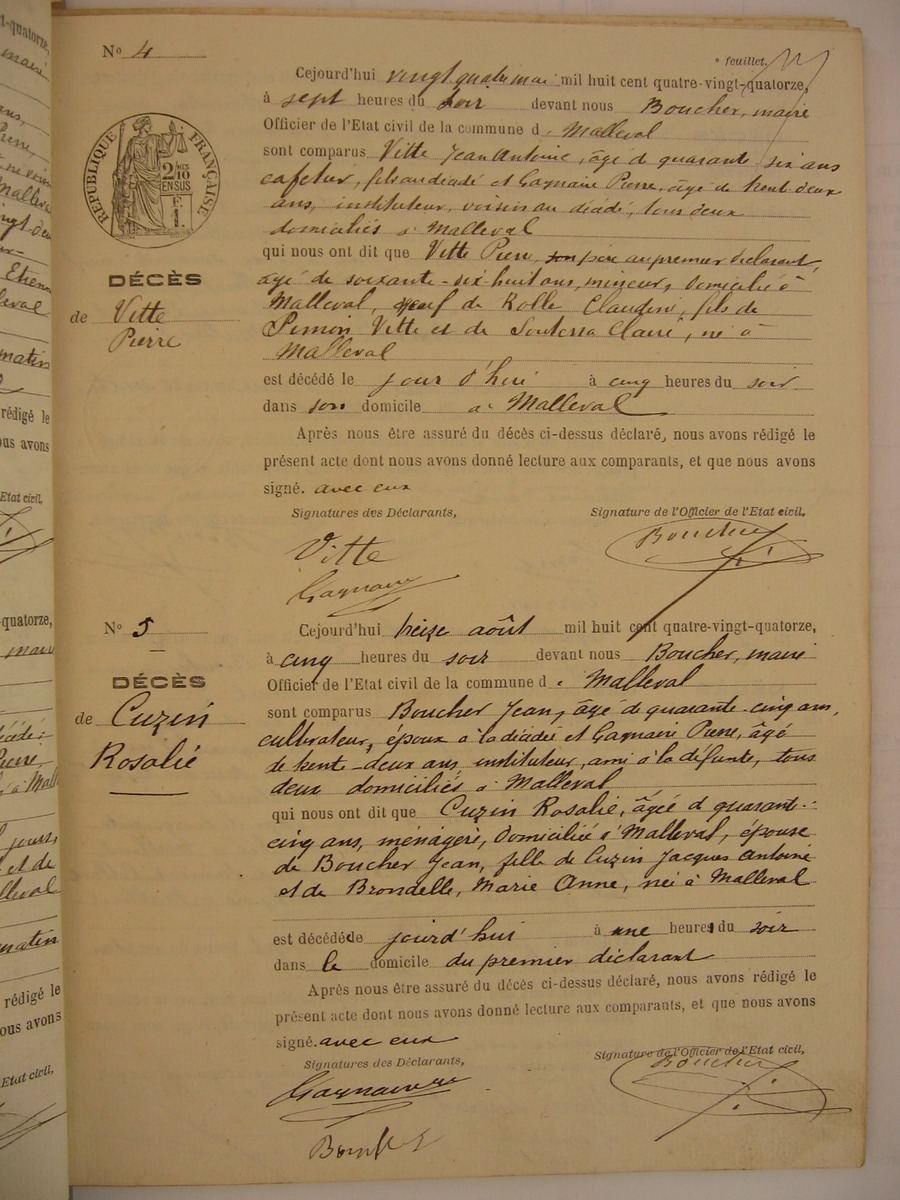 t-quatorze,
maire
N° 4
° feuillet.
RÉPUBLIQUE FRANÇAISE
2/10
EN SUS
Cejourd'hui vingt quatre mai mil huit cent quatre-vingt-quatorze,
à sept heures du soir devant nous Boucher, maire
Officier de l'Etat civil de la commune d e Malleval
sont comparus Vitte Jean Antoine, âgé d quarante six ans
cafetier, fils au décédé et Gagnaire Pierre, âgé de trent deux
ans, instituteur, voisin au décédé, tous deux
domiciliés à Malleval
DÉCÈS
de Vitte
Pierre
qui nous ont dit que Vitte Pierre, son père au premier déclarant,
âgé de soixante-dix-huit ans, mineur, domicilié à
Malleval, veuf de Rolle Claudine, fils de
Simon Vitte et de Claire, né à
Malleval
est décédé le jour d'hui à cinq heures du soir
dans son domicile à Malleval
Après nous être assuré du décès ci-dessus déclaré, nous avons rédigé le
présent acte dont nous avons donné lecture aux comparants, et que nous avons
signé. avec eux
Signatures des Déclarants,
Signature de l'Officier de l'Etat civil,
Vitte
Boucher
Gagnaire
N° 5
Cejourd'hui treize août mil huit cent quatre-vingt-quatorze,
à cinq heures du soir devant nous Boucher, maire
Officier de l'Etat civil de la commune d e Malleval
DÉCÈS
de Cuzin
Rosalie
sont comparus Boucher Jean, âgé d quarante-cinq ans,
cultivateur, époux à la décédée et Gagnaire Pierre, âgé
de trent-deux ans, instituteur, ami à la défunte, tous
deux domiciliés à Malleval
qui nous ont dit que Cuzin Rosalie, âgée d quarante-
cinq ans, ménagère, domiciliée à Malleval, épouse
de Boucher Jean, fille de Cuzin Jacques Antoine
et de Brondelle, Marie Anne, née à Malleval
est décédée le jourd'hui à une heures du soir
dans le domicile du premier déclarant
Après nous être assuré du décès ci-dessus déclaré, nous avons rédigé le
présent acte dont nous avons donné lecture aux comparants, et que nous avons
signé. avec eux
Signatures des Déclarants,
Signature de l'Officier de l'Etat civil,
Boucher
Gagnaire